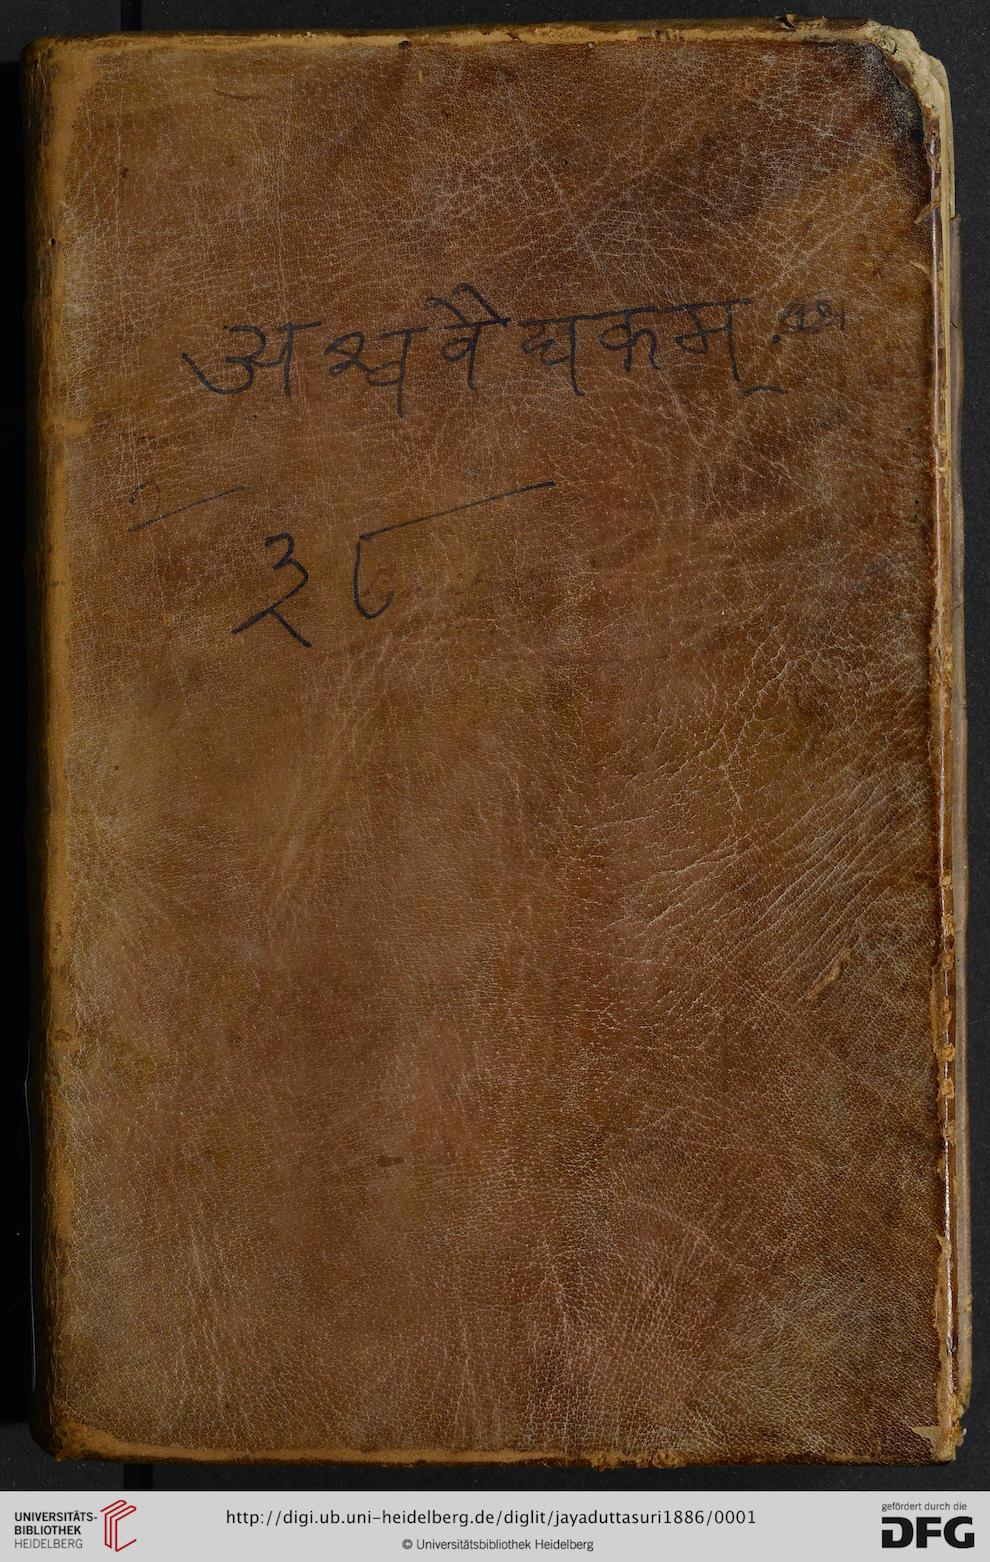 अश्ववैद्यकम्
३८
UNIVERSITÄTS-
BIBLIOTHEK
HEIDELBERG
http://digi.ub.uni-heidelberg.de/diglit/jayaduttasuri1886/0001
© Universitätsbibliothek Heidelberg
gefördert durch die
DFG